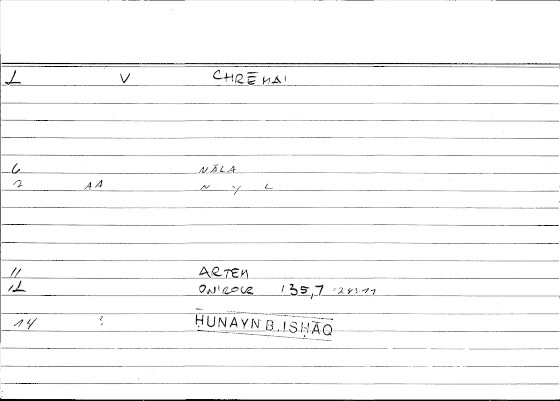 1 V CHRĒMAI
6 NĀLA
2 AA N Y L
11 ARTEM
12 ONIROCR 135,7 :24:11
14 ? ḤUNAYN B. ISḤĀQ